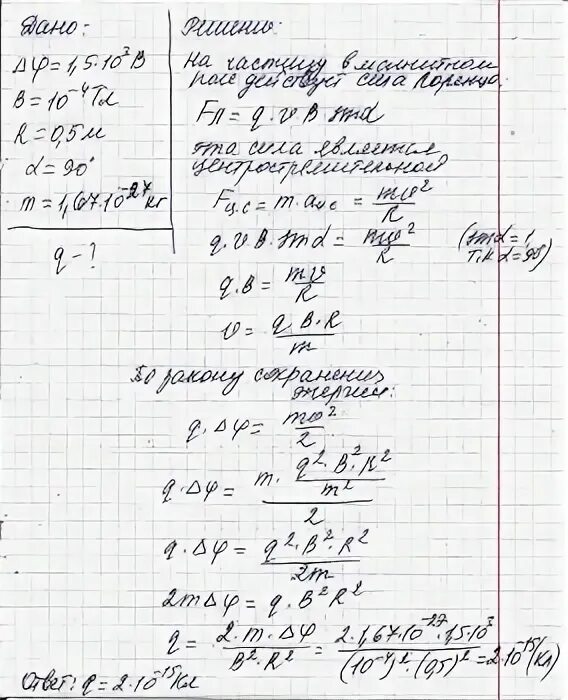 Дано:
Δφ = 1,5·10³ В
B = 10⁻⁴ Тл
R = 0,5 м
α = 90°
m = 1,67·10⁻²⁷ кг
q - ?
Решение:
На частицу в магнитном
поле действует сила Лоренца.
Fл = q·υ·B sinα
эта сила является
центростремительной
Fц.с = m·aц.с = mυ²/R
q·υ·B·sinα = mυ²/R (sinα = 1,
т.к α = 90°)
q·B = mυ/R
υ = q·B·R/m
По закону сохранения
энергии:
q·Δφ = mυ²/2
q·Δφ = (m · q²·B²·R²/m²)/2
q·Δφ = q²·B²·R²/2m
2mΔφ = q·B²R²
q = 2·m·Δφ/B²·R² = 2·1,67·10⁻²⁷·1,5·10³/(10⁻⁴)²·(0,5)² = 2·10⁻¹⁵ (Кл)
Ответ: q = 2·10⁻¹⁵ Кл